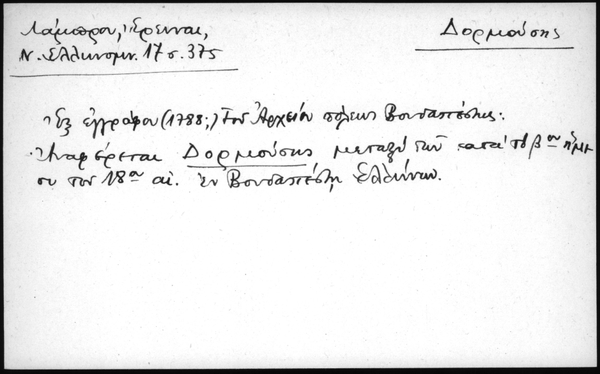 Λάμπρου, Ἔρευναι,
Ν. Ἑλληνομν. 17 σ. 375
Δορμούσης
Ἐξ ἐγγράφου (1788;) τοῦ Ἀρχείου πόλεως Βουδαπέστης:
Ἀναφέρεται Δορμούσης μεταξὺ τῶν κατὰ τὸ βον ἥμι-
συ τοῦ 18ου αἰ. ἐν Βουδαπέστῃ Ἑλλήνων.